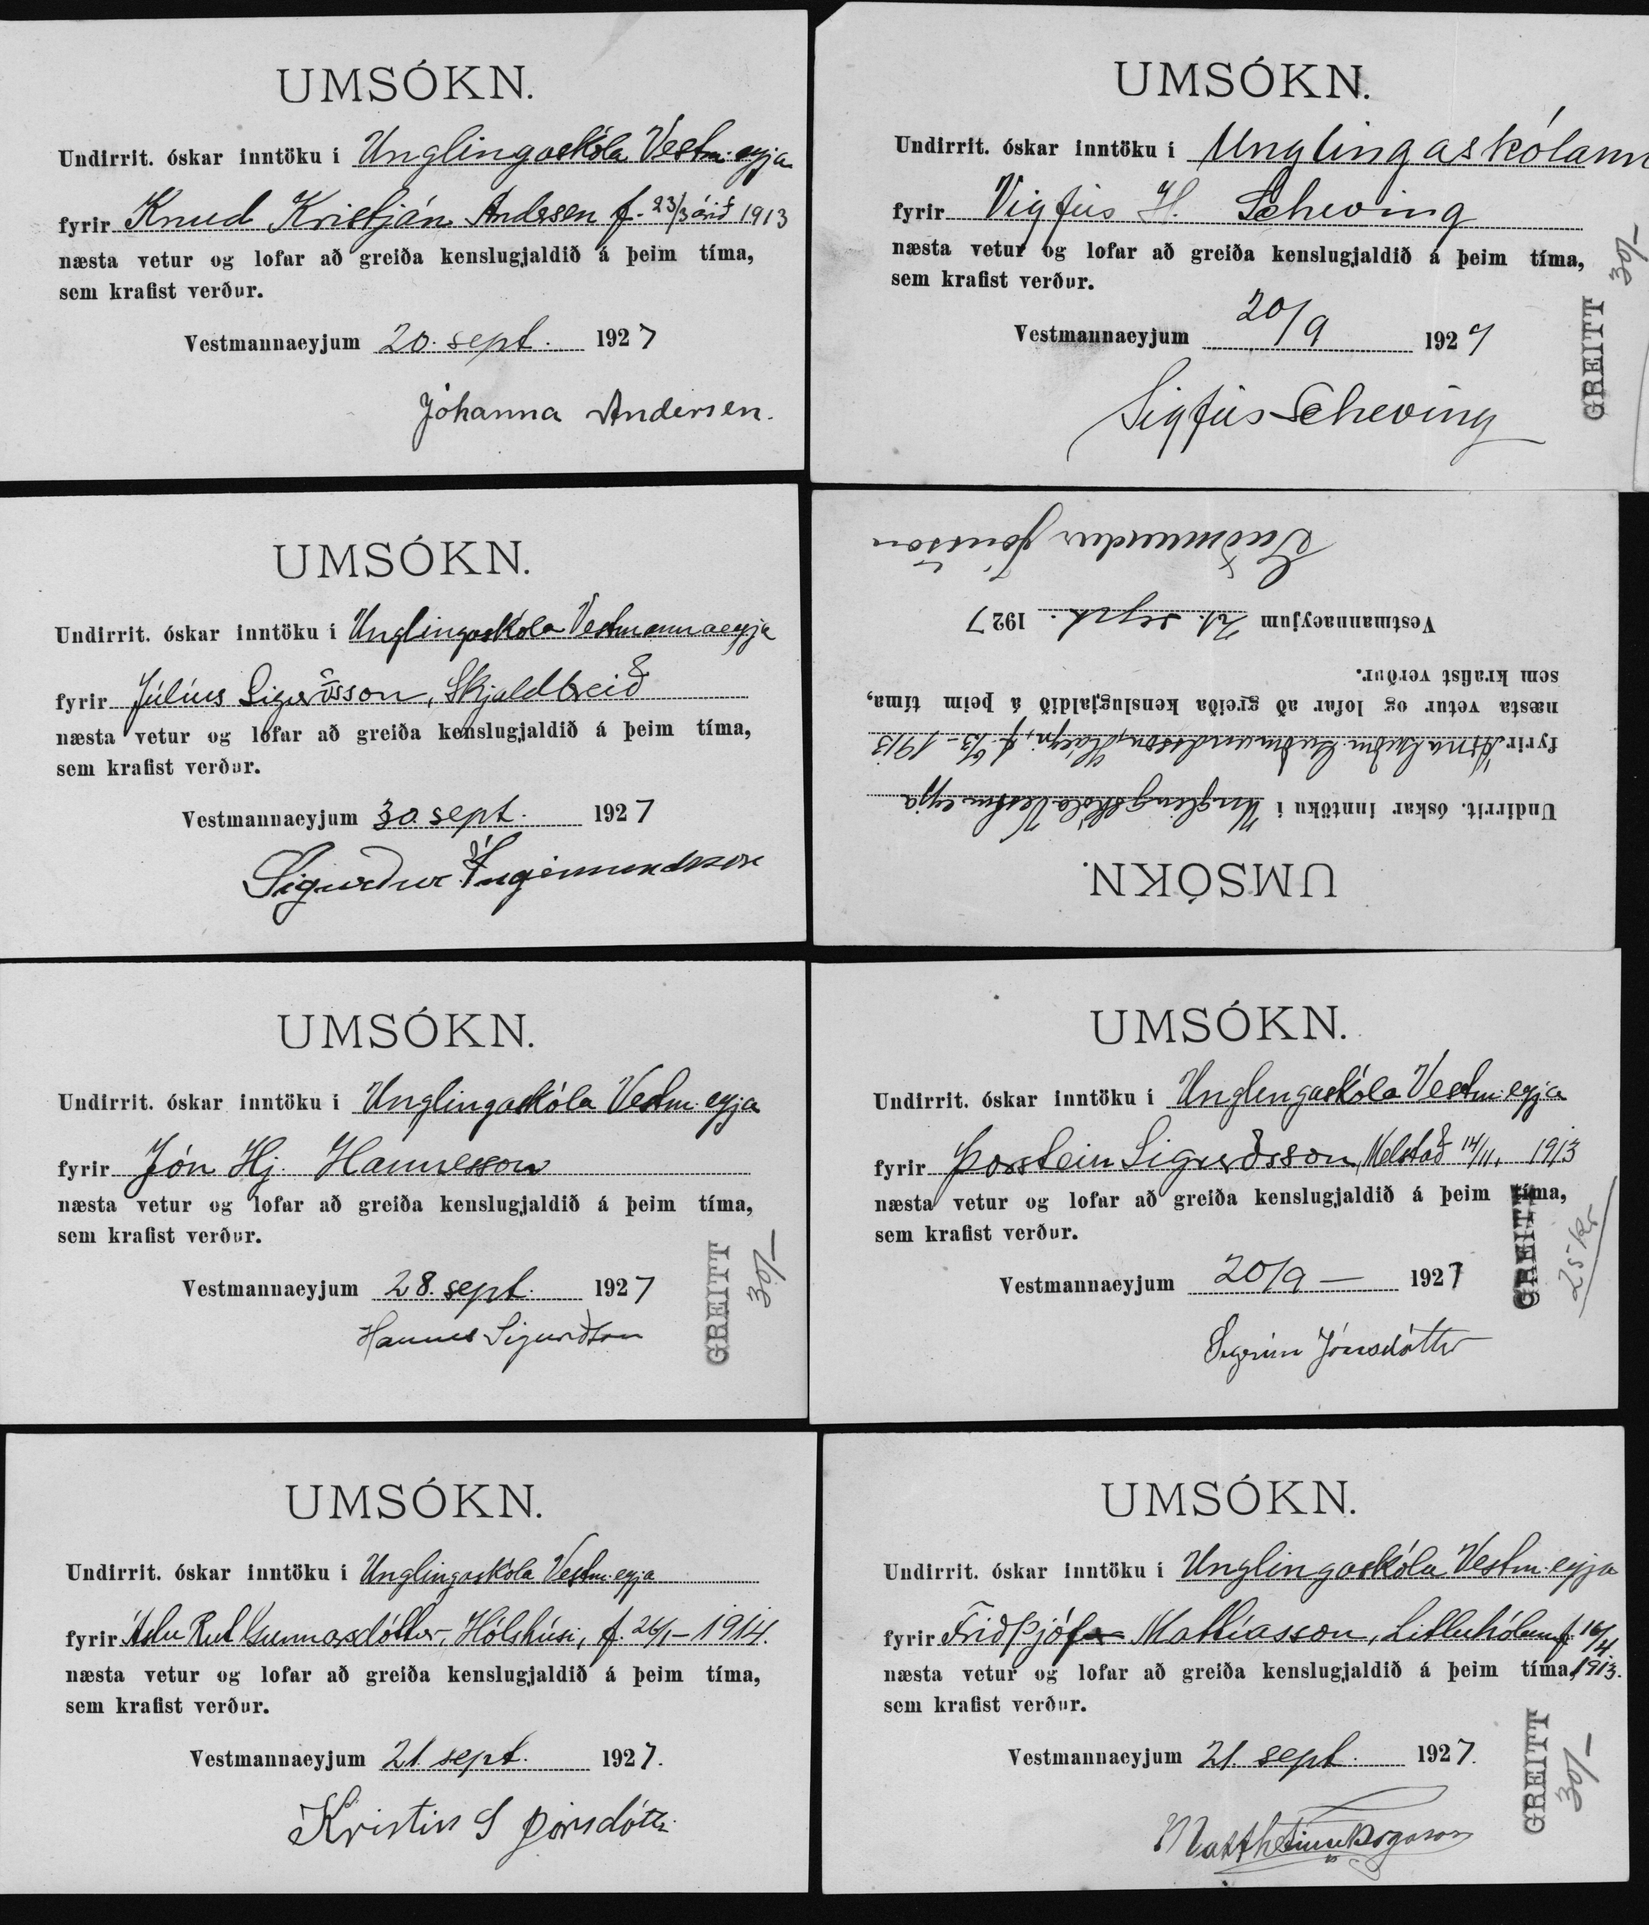 UMSÓKN.
Undirrit. óskar inntöku í Unglingaskóla Vestm.eyja
fyrir Knud Kristján Andesen f. 23/3 árið 1913
næsta vetur og lofar að greiða kenslugjaldið á þeim tíma,
sem krafist verður.
Vestmannaeyjum 20. sept. 1927
Jóhanna Andersen.
UMSÓKN.
Undirrit. óskar inntöku í Unglingaskólann
fyrir Vigfús H. Scheving
næsta vetur og lofar að greiða kenslugjaldið á þeim tíma,
sem krafist verður.
Vestmannaeyjum 20/9 1927
Sigfús Scheving
GREITT
30/-
UMSÓKN.
Undirrit. óskar inntöku í Unglingaskóla Vestmannaeyja
fyrir Júlíus Sigurðsson, Skjaldbreið
næsta vetur og lofar að greiða kenslugjaldið á þeim tíma,
sem krafist verður.
Vestmannaeyjum 30. sept. 1927
Sigurður Ingimundsson
UMSÓKN.
Undirrit. óskar inntöku í Unglingskóla Vestm.eyja
fyrir Árna Guðm. Guðmundsson, Háeyri, f. 6/3 - 1913
næsta vetur og lofar að greiða kenslugjaldið á þeim tíma,
sem krafist verður.
Vestmannaeyjum 21. sept. 1927
Guðmundur Jónsson
UMSÓKN.
Undirrit. óskar inntöku í Unglingaskóla Vestm.eyja
fyrir Jón Hj. Hannesson
næsta vetur og lofar að greiða kenslugjaldið á þeim tíma,
sem krafist verður.
Vestmannaeyjum 28. sept. 1927
Hannes Sigurðsson
GREITT
30/-
UMSÓKN.
Undirrit. óskar inntöku í Unglingaskóla Vestm.eyja
fyrir Þorstein Sigurðsson, Melstað 14/11. 1913
næsta vetur og lofar að greiða kenslugjaldið á þeim tíma,
sem krafist verður.
Vestmannaeyjum 20/9 — 1927
Sigrún Jónsdóttir
GREITT
25 kr
UMSÓKN.
Undirrit. óskar inntöku í Unglingaskóla Vestm.eyja
fyrir Rut Gunnarsdóttur, Hólshúsi, f. 26/1 - 1914.
næsta vetur og lofar að greiða kenslugjaldið á þeim tíma,
sem krafist verður.
Vestmannaeyjum 21. sept. 1927.
Kristín S Þórsdóttir
UMSÓKN.
Undirrit. óskar inntöku í Unglingaskóla Vestm.eyja
fyrir Friðþjóf Mattíasson, Litluhólum f. 16/4
næsta vetur og lofar að greiða kenslugjaldið á þeim tíma, 1913.
sem krafist verður.
Vestmannaeyjum 21. sept. 1927.
GREITT
30/-